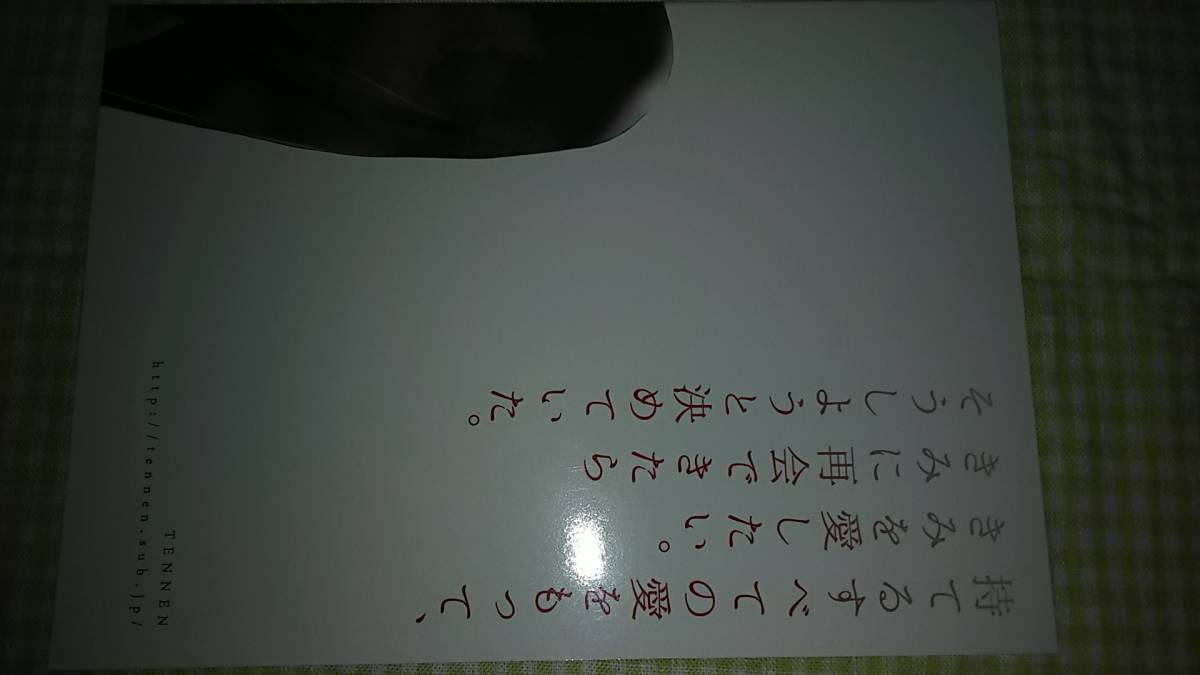 持てるすべての愛をもって、
きみを愛したい。
きみに再会できたら
そうしようと決めていた。
TENNEN
http://tennen.sub.jp/